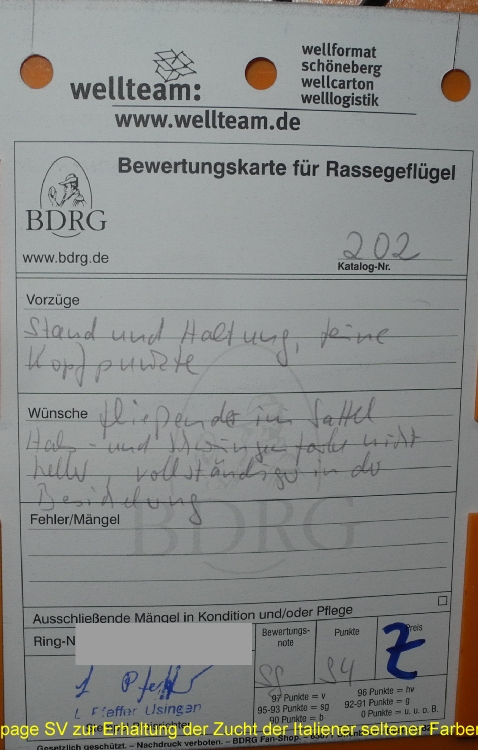 wellteam:
wellformat
schöneberg
wellcarton
welllogistik
www.wellteam.de
Bewertungskarte für Rassegeflügel
BDRG
www.bdrg.de
202
Katalog-Nr.
Vorzüge
Stand und Haltung, feine
Kopfpunkte
Wünsche fließender im Sattel
Hals- und Schwingenfarbe nicht
heller, vollständiger in der
Besichelung
BDRG
Fehler/Mängel
Ausschließende Mängel in Kondition und/oder Pflege
Ring-N
Bewertungs-
note
Punkte
Preis
sg
94
Z
Pfeffer
Pfeffer Usingen
97 Punkte = v
96 Punkte = hv
95-93 Punkte = sg
92-91 Punkte = g
90 Punkte = b
0 Punkte = u. u. o. B.
Gesetzlich geschützt. – Nachdruck verboten. – BDRG Fan-Shop
page SV zur Erhaltung der Zucht der Italiener seltener Farben